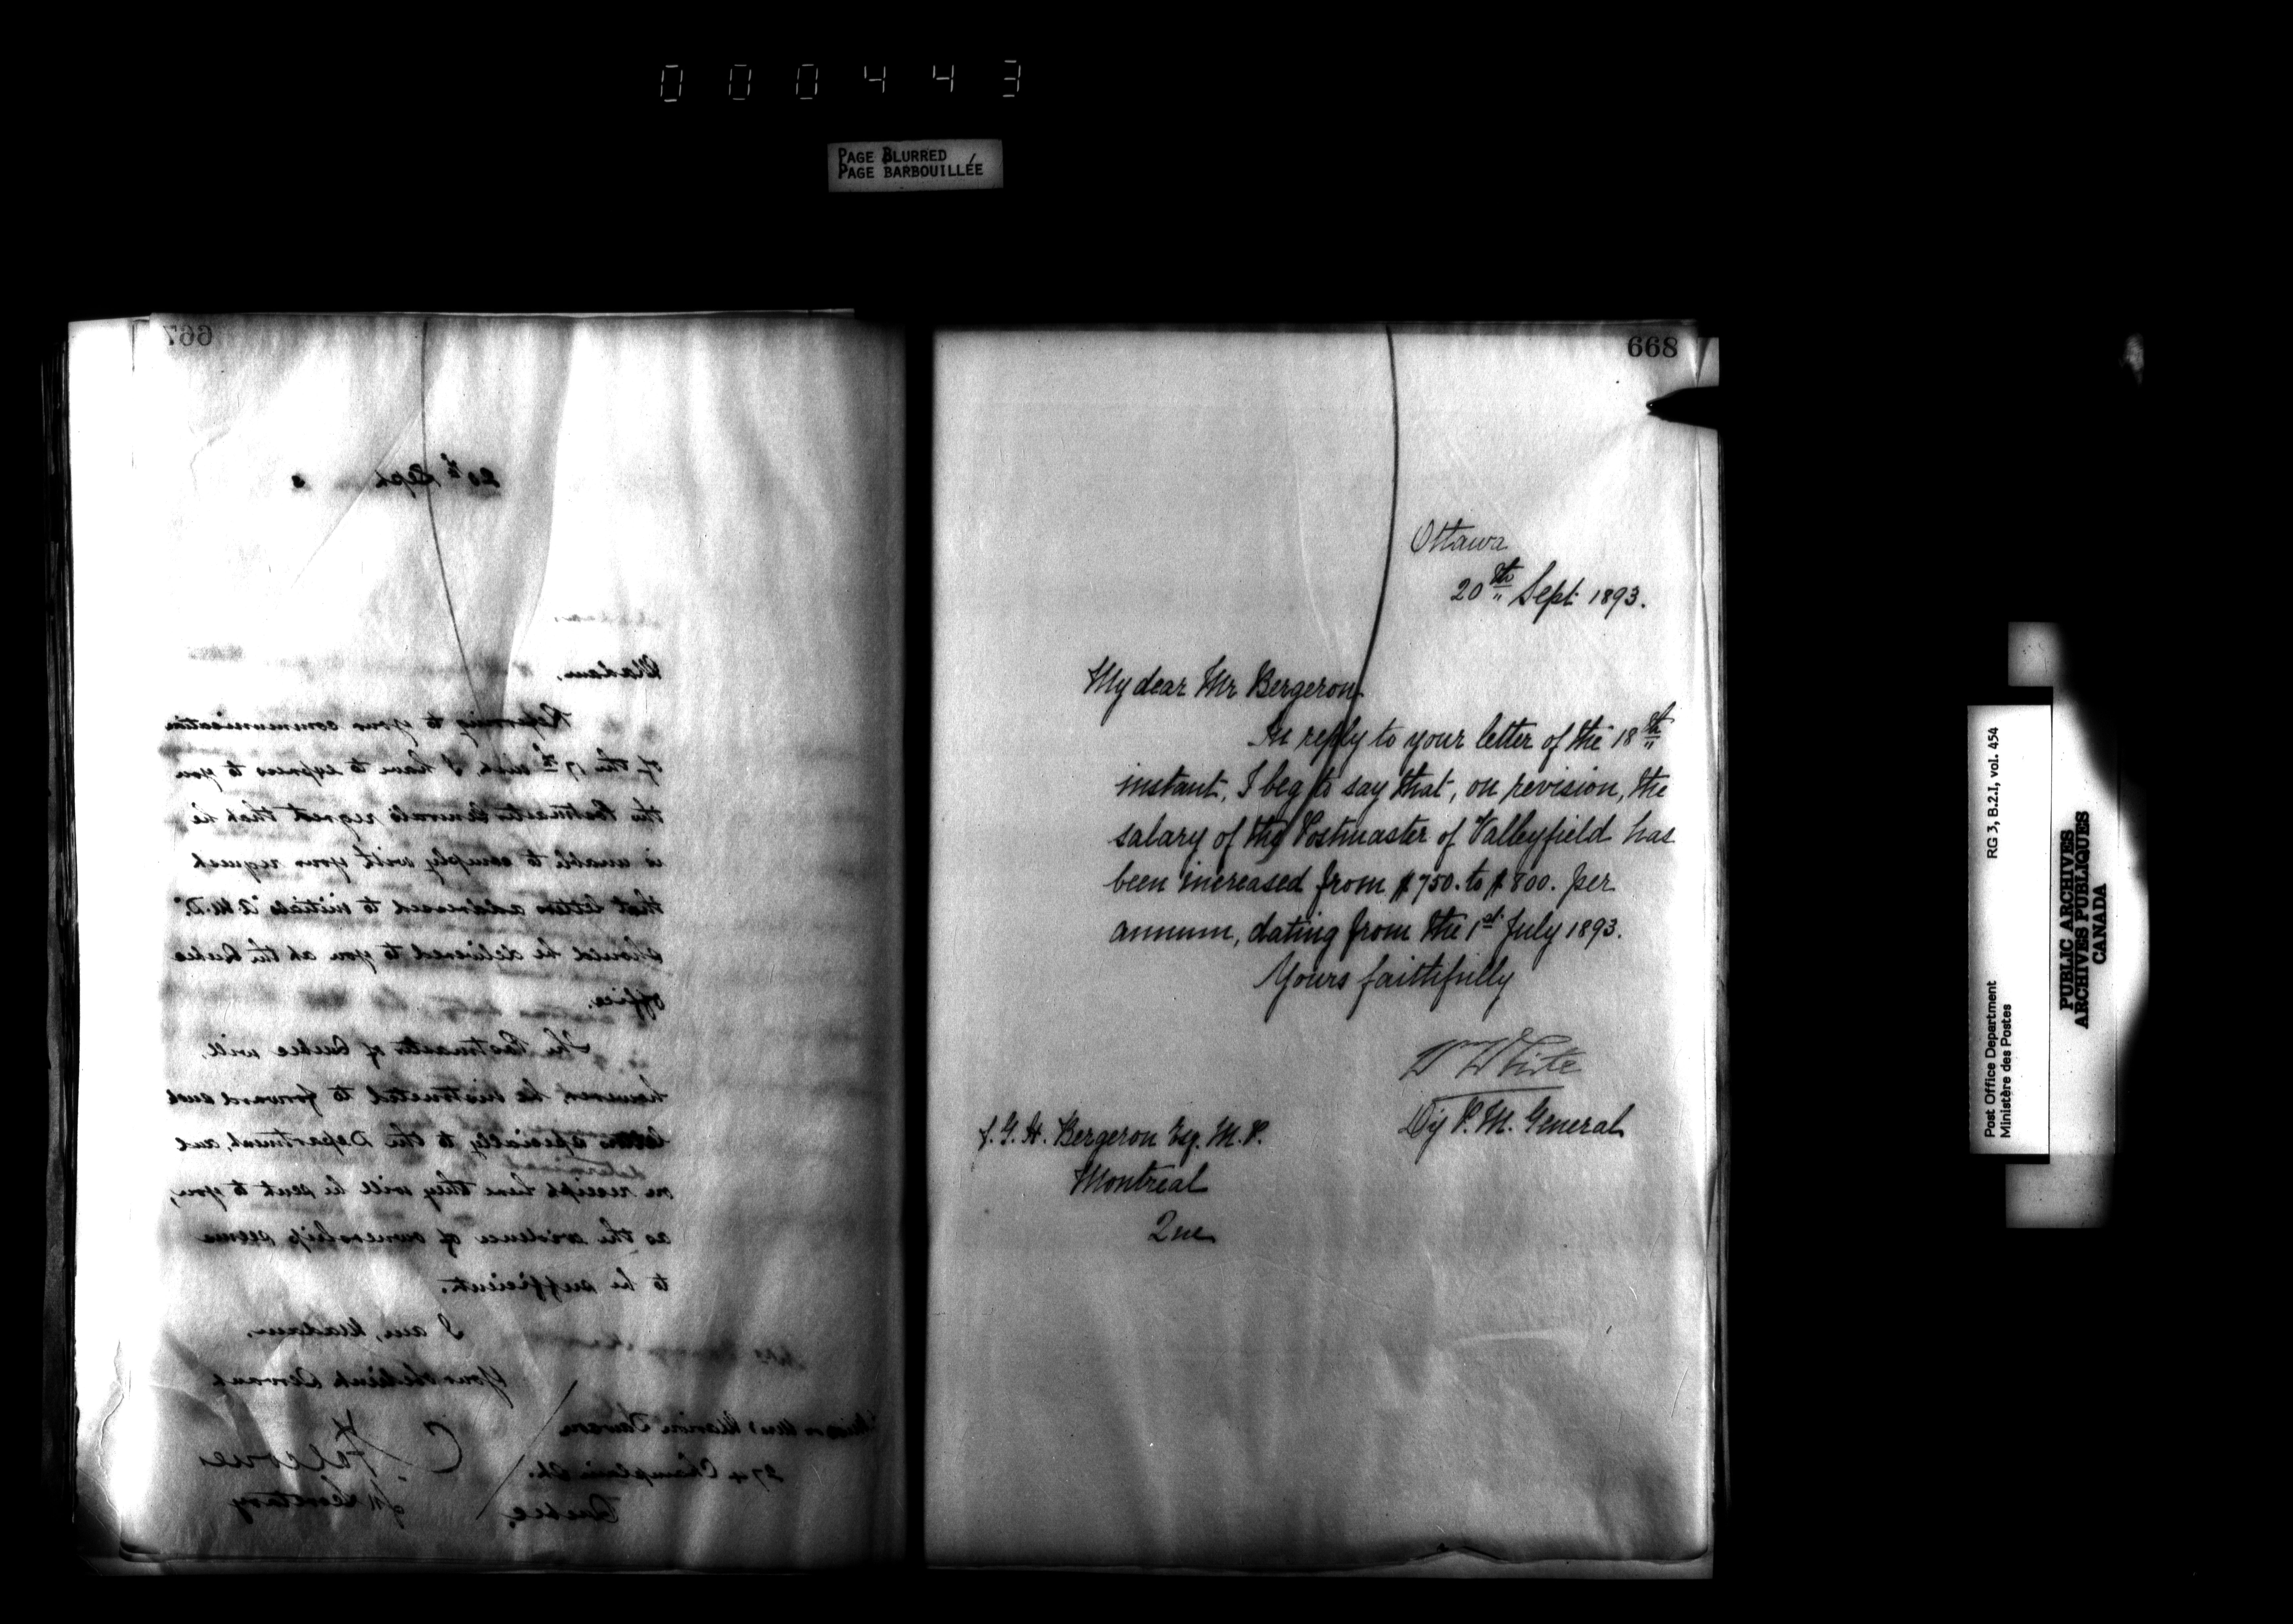 000443
PAGE BLURRED
PAGE BARBOUILLÉE
667
20th Sept 3
Madam,
Referring to your communication
of the 17th inst I have to express to you
the Postmaster General's regret that he
is unable to comply with your request
that letters addressed to initials "A.M.D."
should be delivered to you at the Quebec
office.
The Postmaster of Quebec will,
however, be instructed to forward such
letters specially to the Department, and
on receipt here they will be sent to you,
as the evidence of ownership seems
to be sufficient.
I am, Madam,
Your obedient Servant
for Secretary
Marion Dawson
274 Champlain St.
Quebec.
668
Ottawa
20th Sept 1893.
My dear Mr Bergeron
In reply to your letter of the 18th
instant, I beg to say that, on revision, the
salary of the Postmaster of Valleyfield has
been increased from $750. to $800. per
annum, dating from the 1st July 1893.
Yours faithfully
W White
Dy P. M. General
J. G. H. Bergeron Esq. M. P.
Montreal
Que
Post Office Department
Ministère des Postes
RG 3, B.2.I, vol. 454
PUBLIC ARCHIVES
ARCHIVES PUBLIQUES
CANADA